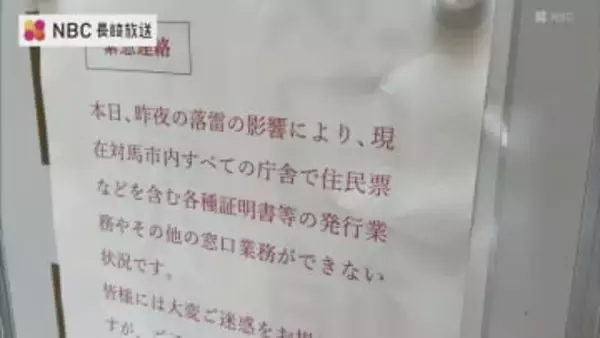 NBC 長崎放送
NBC
緊急連絡
本日、昨夜の落雷の影響により、現
在対馬市内すべての庁舎で住民票
などを含む各種証明書等の発行業
務やその他の窓口業務ができない
状況です。
皆様には大変ご迷惑をお掛
すが、ご